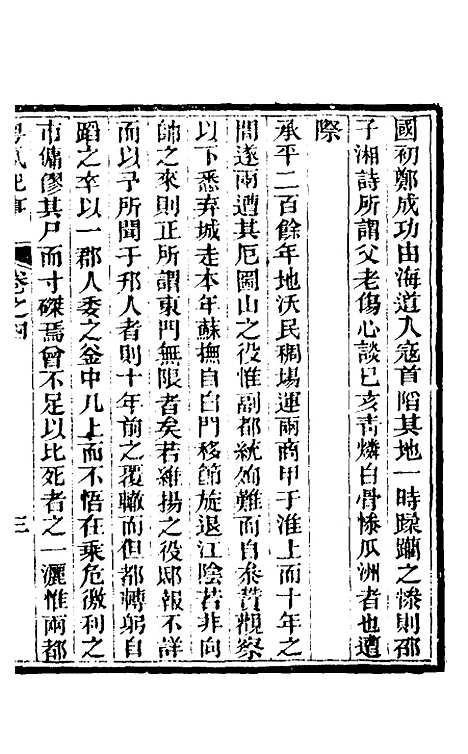 國初鄭成功由海道入寇首陷其地一時蹂躪之慘則邵
子湘詩所謂父老傷心談已亥靑燐白骨慘瓜洲者也遭
際
承平二百餘年地沃民稠場運兩商甲于淮上而十年之
間遂兩遭其厄圌山之役惟副都統殉難而自參贊觀察
以下悉弃城走本年蘇撫自白門移節旋退江陰若非向
帥之來則正所謂東門無限者矣若維揚之役邸報不詳
而以予所聞于邗人者則十年前之覆轍而但都轉躬自
蹈之卒以一郡人委之釜中几上而不悟在乘危徼利之
市傭僇其尸而寸磔焉曾不足以比死者之一灑惟兩都
粵氛紀事 卷之四 三